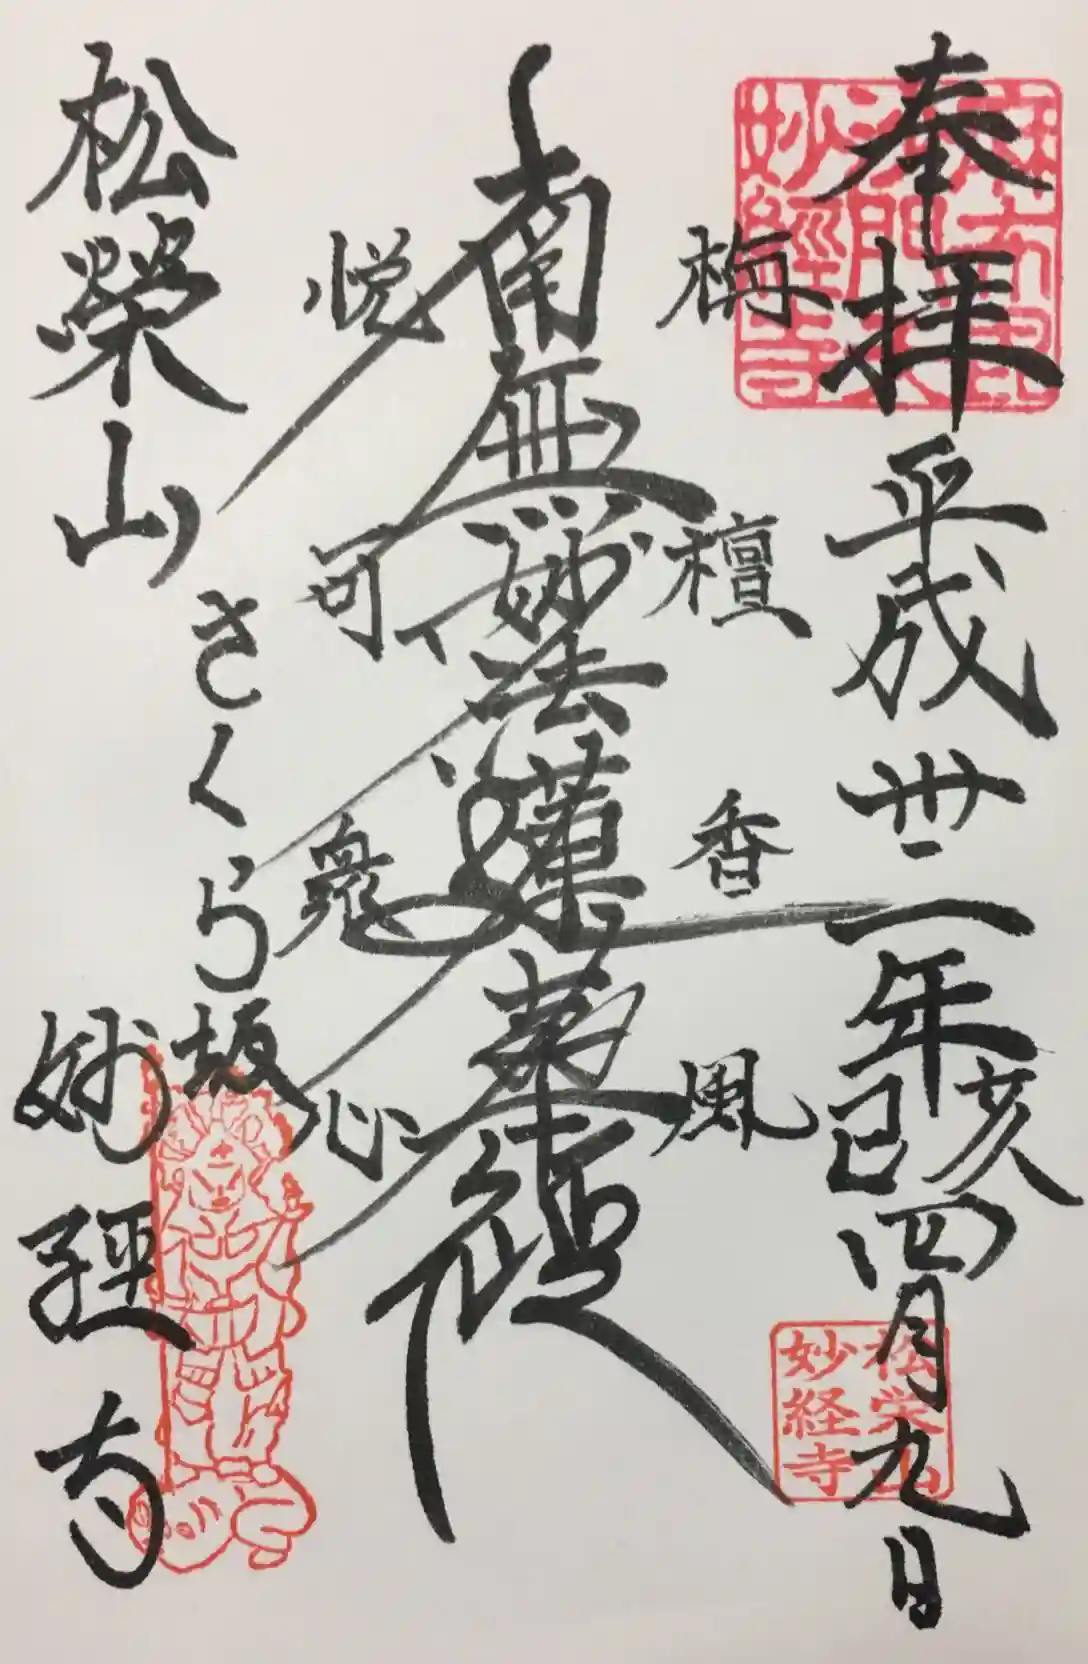 奉拝 平成卅一年己亥四月九日
栴檀香風
南無妙法蓮華経
悦可衆心
松榮山
さくら坂
妙經寺
妙經寺
松栄山
妙経寺